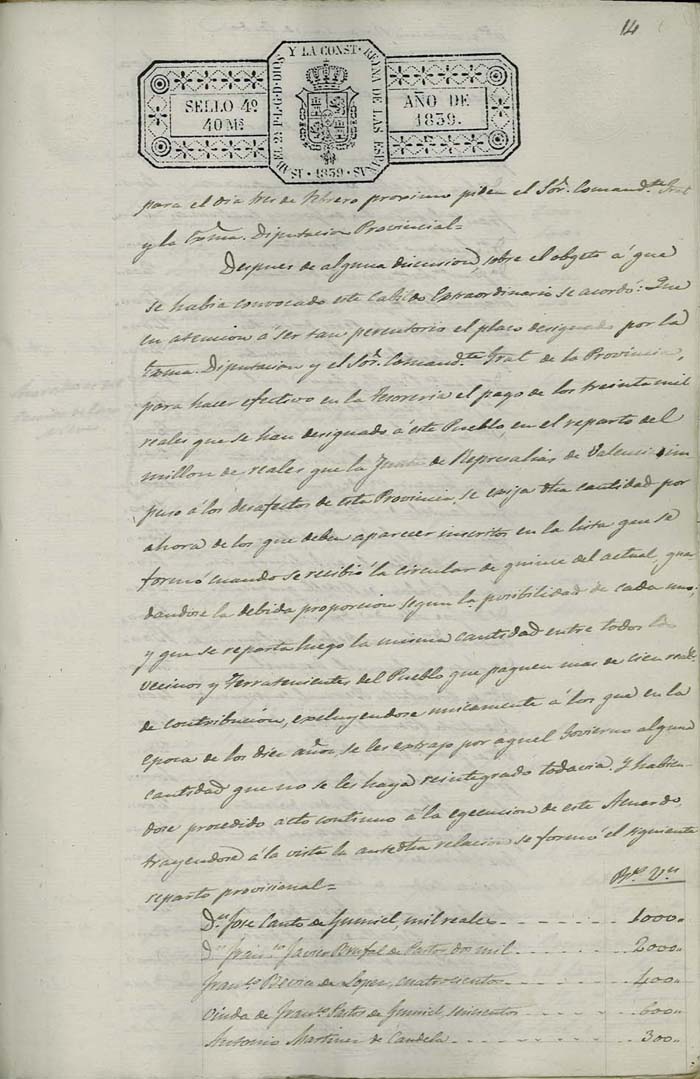 14
ISABEL 2ª P. L. G. D. DIOS Y LA CONST. REYNA DE LAS ESPAÑAS
SELLO 4º
40 Ms
AÑO DE
1839.
1839
para el dia tres de febrero proximo piden el Sor. Comandte. Gral
y la Exma. Diputacion Provincial=
Despues de alguna discusion, sobre el obgeto á que
se habia convocado este Cabildo Extraordinario se acordó: Que
en atencion á ser tan perentorio el plazo designado por la
Exma. Diputacion y el Sor. Comandte. Gral de la Provincia,
para hacer efectivo en la Tesoreria el pago de los treinta mil
reales que se han designado á este Pueblo, en el reparto del
millon de reales que la Junta de Represalias de Valencia im
puso á los desafectos de esta Provincia, se exija dha cantidad por
ahora de los que deben aparecer inscritos en la lista que se
formó cuando se recibió la circular de quince del actual, guar
dandose la debida proporcion segun la posibilidad de cada uno;
y que se reparta luego la misma cantidad entre todos los
vecinos y Terratenientes del Pueblo que paguen mas de cien reals.
de contribución, excluyendose unicamente á los que en la
epoca de los diez años, se les extrajo por aquel Govierno alguna
cantidad que no se les haya reintegrado todavia. Y habien-
dose procedido acto continuo á la egecucion de este Acuerdo,
trayendose á la vista la antedha relacion se formó el siguiente
reparto provisional=
Rs. Vn
Dn. Jose Canto de Gumiel, mil reales 1000„
Dn. Franco. Javier Brufal de Pastor dos mil 2000„
Franco. de Lopez, cuatrocientos 400„
Viuda de Franco. Pastor de Gumiel, seiscientos 600„
Antonio Martinez de Candela 300„